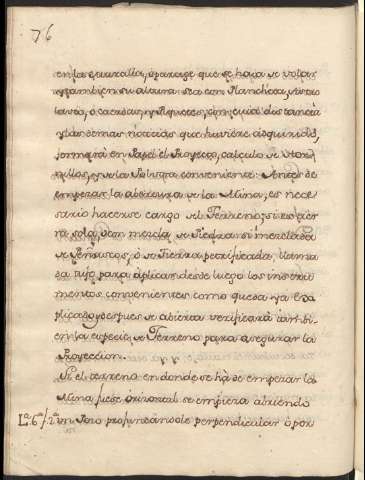 76
en la muralla, o parage que se haia de volar
y tambien su altura: sea con Plancheta,
o cuerdas, y Piquetes, con cuia distancia
y las demas noticias que huviere adquirido,
formará en Papel el Proyecto, calculo de
y de la Polvora conveniente. Antes de
empezar la abertura de la Mina, es nece-
sario hacerse cargo del Terreno; si es tier
ra sola, o con mezcla de Piedra, si mezclada
de Peñascos, o de Tierra petrificada, llama
da tufo para aplicar desde luego los instru
mentos convenientes como queda ya ex
plicado, y despues de abierta verificará tambi-
en la especie de Terreno para asegurar la
Proyeccion.
Si el terreno en donde se há de empezar la
Mina fuese orizontal se empieza abriendo
La. 6.a f. 2.a un Pozo profundandole perpendicular ó por